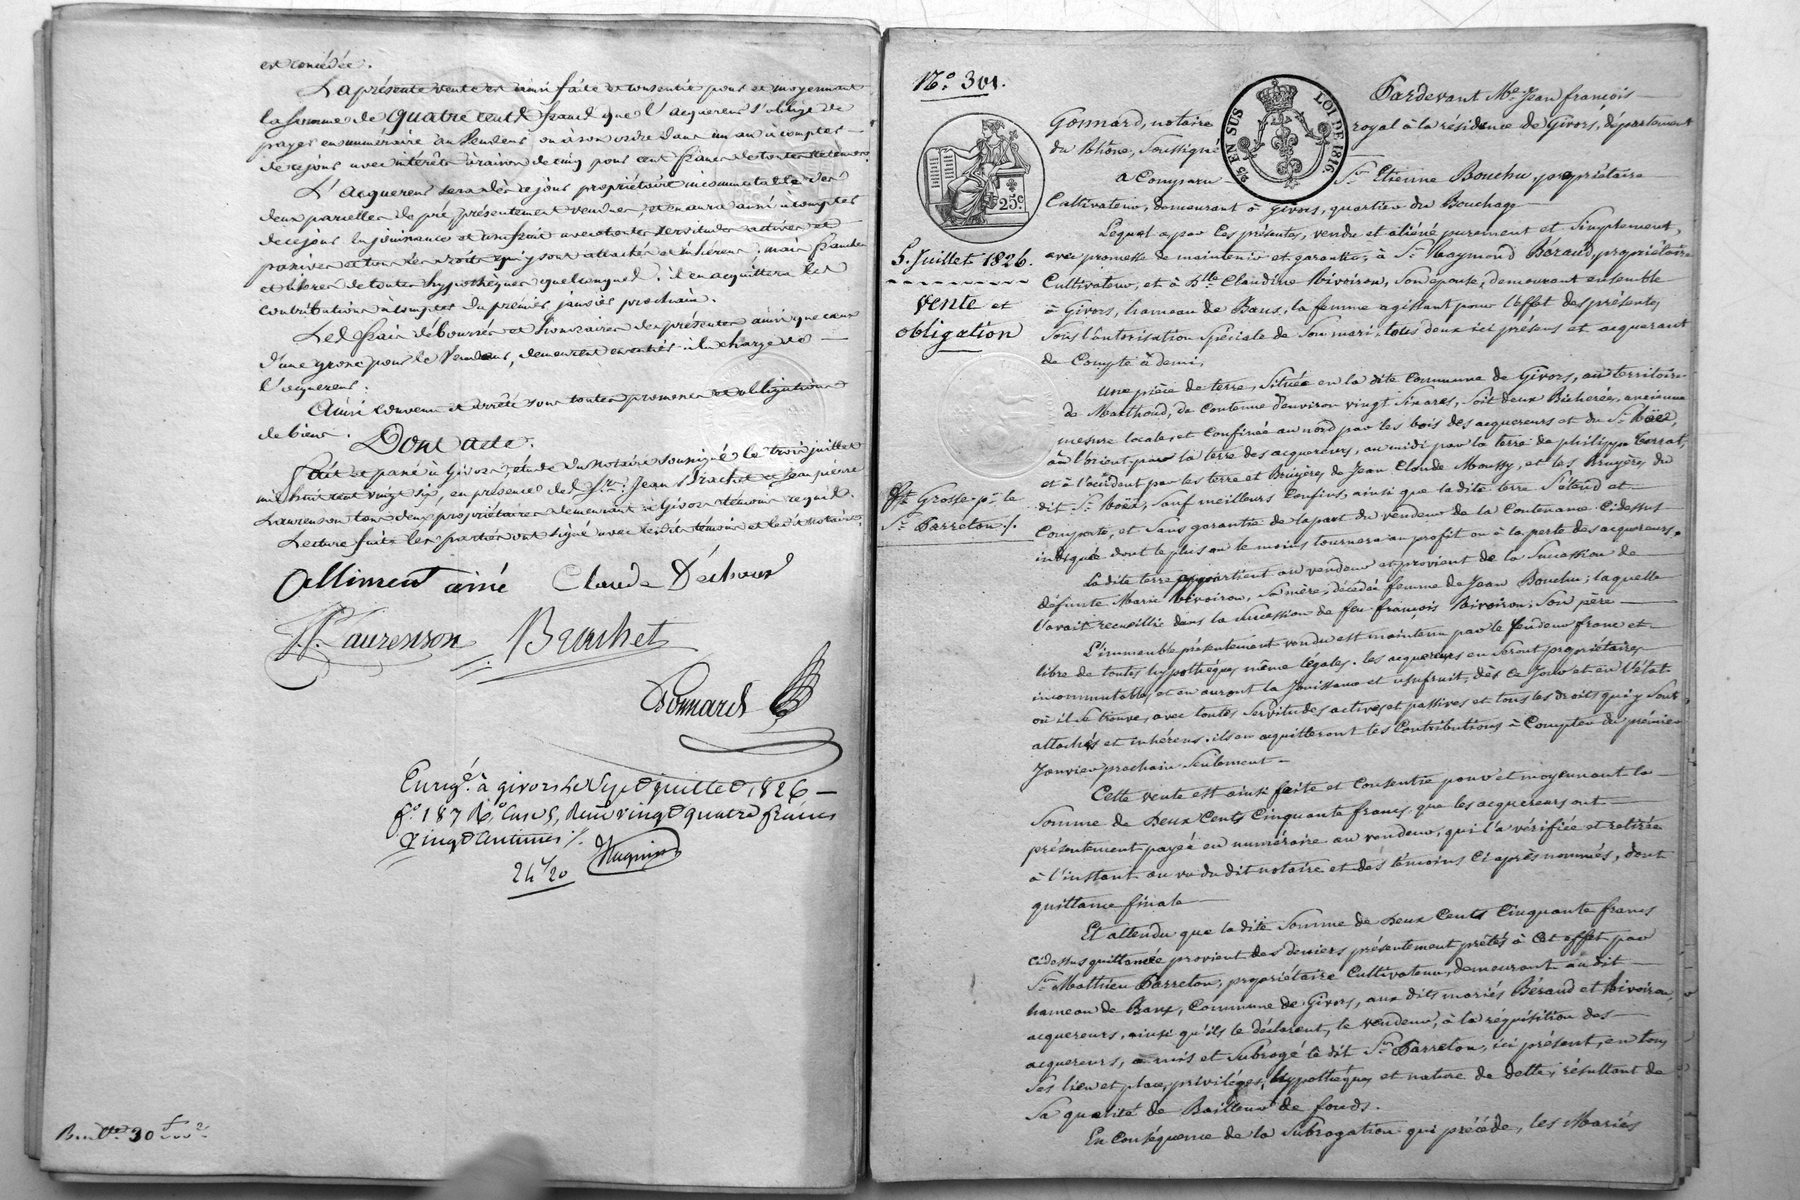 est concédée.
La présente vente est ainsi faite et consentie pour et moyennant
la somme de quatre cent francs que l'acquereur s'oblige de
payer en numéraire au Vendeur ou à son ordre dans un an à compter
de ce jour avec intérêts à raison de cinq pour cent francs de toutes retenues
L'acquereur sera dès ce jour propriétaire incommutable des
deux parcelles de pré présentement vendues, et en aura ainsi à compter
de ce jour la jouissance et usufruit avec toutes servitudes actives et
passives et tous les droits qui y sont attachés et inhérens, mais franches
et libres de toutes hypothèques quelconques ; il en acquittera les
contributions à compter du premier janvier prochain.
Les frais déboursés et honoraires des présentes ainsi que ceux
d'une grosse pour le Vendeur, demeurent en entier à la charge de
l'acquereur.
Ainsi convenu et arrêté sous toutes promesses et obligations
de biens.
Dont acte.
Fait et passé à Givors étude du notaire soussigné le trois juillet
mil huit cent vingt six, en présence des Srs. Jean Brachet et Jean pierre
Laurenson tous deux propriétaires demeurant à Givors témoins requis.
Lecture faite les parties ont signé avec lesdits témoins et le dit notaire.
Alliment ainé Claude
J.P. Laurenson Brachet
Gonnard
Enregé. à givors le Sept juillet 1826
fo. 187 Ro. Case 5, Reçu vingt quatre francs
vingt Centimes
24f 20
No. 301.
25 EN SUS
LOI DE 1816
25c
Pardevant Me. Jean françois
Gonnard, notaire royal à la résidence de Givors, département
du Rhône, Soussigné
a Comparu Sr. Etienne Bouchu, propriétaire
Cultivateur, demeurant à Givors, quartier du Bouchage
5. Juillet 1826.
Vente et
obligation
Lequel a par Ces présentes, vendu et aliéné purement et Simplement,
avec promesse de maintenir et garantir, à Sr. Raymond Béraud, propriétaire
Cultivateur, et à Dlle. Claudine Rivoiron, Son épouse, demeurant ensemble
à Givors, hameau de Bans, la femme agissant pour l'effet des présentes,
Sous l'autorisation Spéciale de Son mari, tous deux ici présens et acquerant
de Compte à demi,
Une pièce de terre, Située en la dite Commune de Givors, au territoire
de Marthoud, de Contenue d'environ vingt Six ares, Soit deux Bicherées, ancienne
mesure locale, et Confinée au nord par les bois des acquereurs et du Sr. Noël,
à l'orient par la terre des acquereurs, au midi par la terre de philippe Terrat,
et à l'occident par les terre et Bruyères de Jean Claude Moussy, et les Bruyères du
dit Sr. Noël, Sauf meilleurs Confins, ainsi que ladite terre S'étend et
Comporte, et Sans garantie de la part du vendeur de la Contenance Cidessus
indiquée dont le plus ou le moins tournera au profit ou à la perte des acquereurs.
ft Grosse pr. le
Sr. Parreton
La dite terre appartient au vendeur et provient de la Succession de
défunte Marie Rivoiron, Sa mère, décédée femme de Jean Bouchu ; laquelle
l'avait recueillie dans la Succession de feu françois Rivoiron, Son père
L'immeuble présentement vendu est maintenu par le Vendeur franc et
libre de toutes hypothèques même légales. les acquereurs en Seront propriétaires
incommutables, et en auront la Jouissance et usufruit, dès Ce Jour et en l'état
où il Se trouve, avec toutes Servitudes actives et passives et tous les droits qui y Sont
attachés et inhérens. ils en acquitteront les Contributions à Compter du premier
Janvier prochain Seulement
Cette vente est ainsi faite et Consentie pour et moyennant la
Somme de Deux Cents Cinquante francs, que les acquereurs ont
présentement payée en numéraire au vendeur, qui l'a vérifiée et retirée
à l'instant au vu du dit notaire et des témoins Ci après nommés, dont
quittance finale
Et attendu que la dite Somme de Deux Cents Cinquante francs
Cidessus quittancée provient des deniers présentement prêtés à Cet effet par
Sr. Mathieu Parreton, propriétaire Cultivateur, demeurant au dit
hameau de Bans, Commune de Givors, aux dits mariés Béraud et Rivoiron,
acquereurs, ainsi qu'ils le déclarent, le vendeur, à la réquisition des
acquereurs, a mis et Subrogé le dit Sr. Parreton, ici présent, en tous
Ses lieu et place, privilèges, hypothèques et nature de dette, résultant de
Sa qualité de Bailleur de fonds.
En Conséquence de la Subrogation qui précède, les Mariés